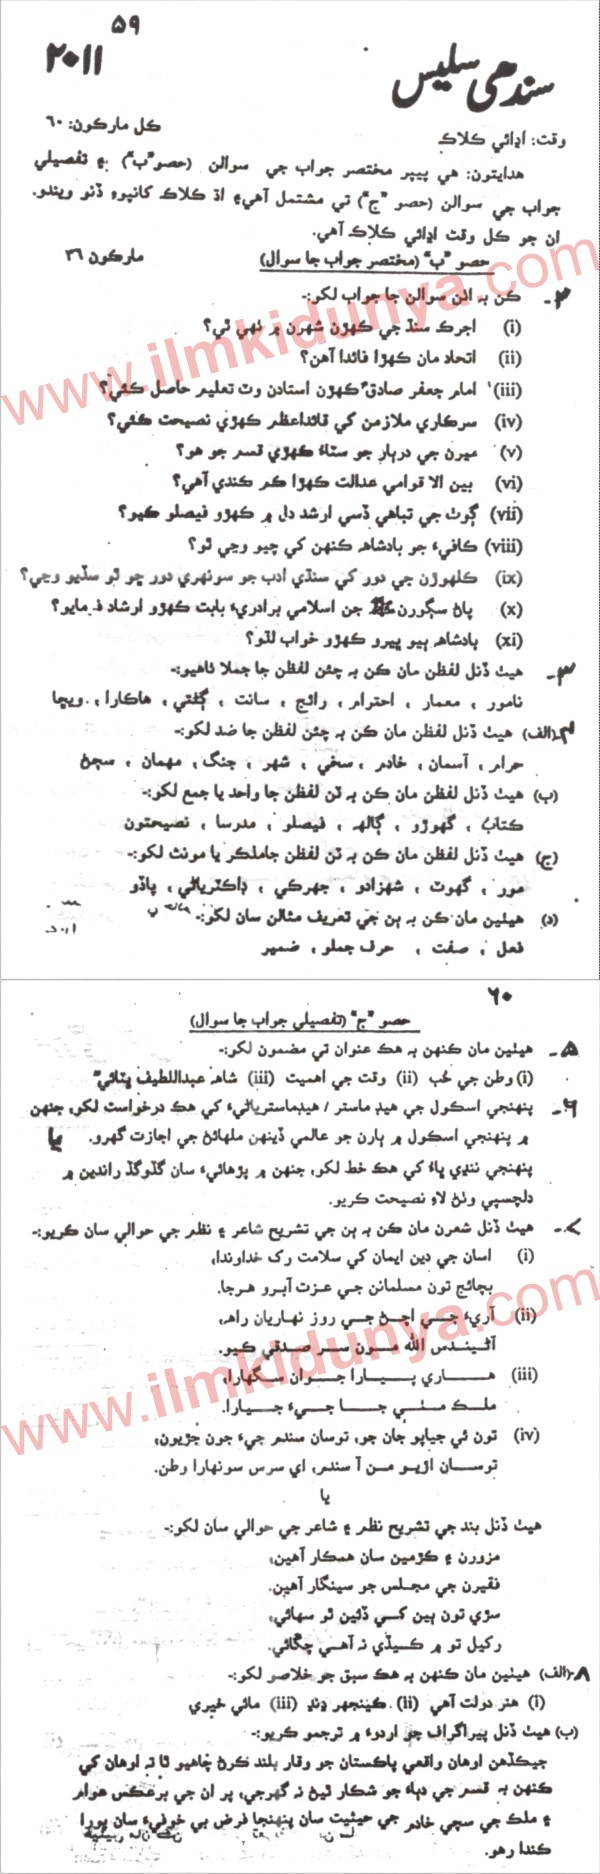 ۵۹
سنڌي سليس
۲۰۱۱
وقت: اڍائي ڪلاڪ
ڪل مارڪون: ۶۰
هدايتون: هي پيپر مختصر جواب جي سوالن (حصو "ب") ۽ تفصيلي
جواب جي سوالن (حصو "ج") تي مشتمل آهي۽ اڌ ڪلاڪ کانپوءِ ڏنو ويندو.
ان جو ڪل وقت اڍائي ڪلاڪ آهي.
حصو "ب" (مختصر جواب جا سوال)
مارڪون ۳۶
۲- ڪن به اٺن سوالن جا جواب لکو:-
(i) اجرڪ سنڌ جي ڪهڙن شهرن ۾ ٺهي ٿي؟
(ii) اتحاد مان ڪهڙا فائدا آهن؟
(iii) امام جعفر صادق ڪهڙن استادن وٽ تعليم حاصل ڪئي؟
(iv) سرڪاري ملازمن کي قائداعظم ڪهڙي نصيحت ڪئي؟
(v) ميرن جي دربار جو سٽاءُ ڪهڙي قسم جو هو؟
(vi) بين الا قوامي عدالت ڪهڙا ڪم ڪندي آهي؟
(vii) ڳوٺ جي تباهي ڏسي ارشد دل ۾ ڪهڙو فيصلو ڪيو؟
(viii) ڪافيءَ جو بادشاهه ڪنهن کي چيو وڃي ٿو؟
(ix) ڪلهوڙن جي دور کي سنڌي ادب جو سونهري دور ڇو ٿو سڏيو وڃي؟
(x) پاڻ سڳورن ﷺ جن اسلامي برادريءَ بابت ڪهڙو ارشاد فرمايو؟
(xi) بادشاهه ٻيو ڀيرو ڪهڙو خواب لڌو؟
۳- هيٺ ڏنل لفظن مان ڪن به ڇئن لفظن جا جملا ٺاهيو:-
نامور ، معمار ، احترام ، رائج ، سانت ، ڳڻتي ، هاڪارا ، ويڇا
۴-(الف) هيٺ ڏنل لفظن مان ڪن به ڇئن لفظن جا ضد لکو:-
حرام ، آسمان ، خادم ، سخي ، شهر ، جنگ ، مهمان ، سڄڻ
(ب) هيٺ ڏنل لفظن مان ڪن به ٽن لفظن جا واحد يا جمع لکو:-
ڪتاب ، گهوڙو ، ڳالهه ، فيصلو ، مدرسا ، نصيحتون
(ج) هيٺ ڏنل لفظن مان ڪن به ٽن لفظن جا مذڪر يا مونث لکو:-
مور ، گهوٽ ، شهزادو ، جهرڪي ، ڊاڪٽرياڻي ، پاڏو
(د) هيٺين مان ڪن به ٻن جي تعريف مثالن سان لکو:-
فعل ، صفت ، حرف جملو ، ضمير
۶۰
حصو "ج" (تفصيلي جواب جا سوال)
۵- هيٺين مان ڪنهن به هڪ عنوان تي مضمون لکو:-
(i) وطن جي حُب (ii) وقت جي اهميت (iii) شاهه عبداللطيف ڀٽائي
۶- پنهنجي اسڪول جي هيڊ ماستر / هيڊماسترياڻيءَ کي هڪ درخواست لکو، جنهن
۾ پنهنجي اسڪول ۾ ٻارن جو عالمي ڏينهن ملهائڻ جي اجازت گهرو. يا
پنهنجي ننڍي ڀاءُ کي هڪ خط لکو، جنهن ۾ پڙهائيءَ سان گڏوگڏ راندين ۾
دلچسپي وٺڻ لاءِ نصيحت ڪريو.
۷- هيٺ ڏنل شعرن مان ڪن به ٻن جي تشريح شاعر ۽ نظم جي حوالي سان ڪريو:-
(i) اسان جي دين ايمان کي سلامت رک خداوندا،
بچائج تون مسلمانن جي عزت آبرو هرجا.
(ii) آريءَ جي اچڻ جي روز نهاريان راهه،
آڻيندس الله مون سر صدقي ڪيو.
(iii) هاري پيارا جوان سگهارا،
ملڪ مٺي جا جيءَ جيارا.
(iv) تون ئي جياپو جان جو، توسان سندم جيءَ جون جڙيون،
توسان اڙيو من آ سندم، اي سرس سونهارا وطن.
يا
هيٺ ڏنل بند جي تشريح نظم ۽ شاعر جي حوالي سان لکو:-
مزورن ۽ ڪڙمين سان همڪار آهين،
فقيرن جي مجلس جو سينگار آهين.
سڙي تون ٻين کي ڏئين ٿو سهائي،
رکيل تو ۾ ڪيڏي نه آهي چڱائي.
۸-(الف) هيٺين مان ڪنهن به هڪ سبق جو خلاصو لکو:-
(i) هنر دولت آهي (ii) ڪينجهر ڍنڍ (iii) مائي خيري
(ب) هيٺ ڏنل پيراگراف جو اردوءَ ۾ ترجمو ڪريو:-
جيڪڏهن اوهان واقعي پاڪستان جو وقار بلند ڪرڻ چاهيو ٿا ته اوهان کي
ڪنهن به قسم جي دٻاءَ جو شڪار ٿيڻ نه گهرجي، پر ان جي برعڪس عوام
۽ ملڪ جي سچي خادم جي حيثيت سان پنهنجا فرض بي خوفيءَ سان پورا
ڪندا رهو.
www.ilmkidunya.com
www.ilmkidunya.com